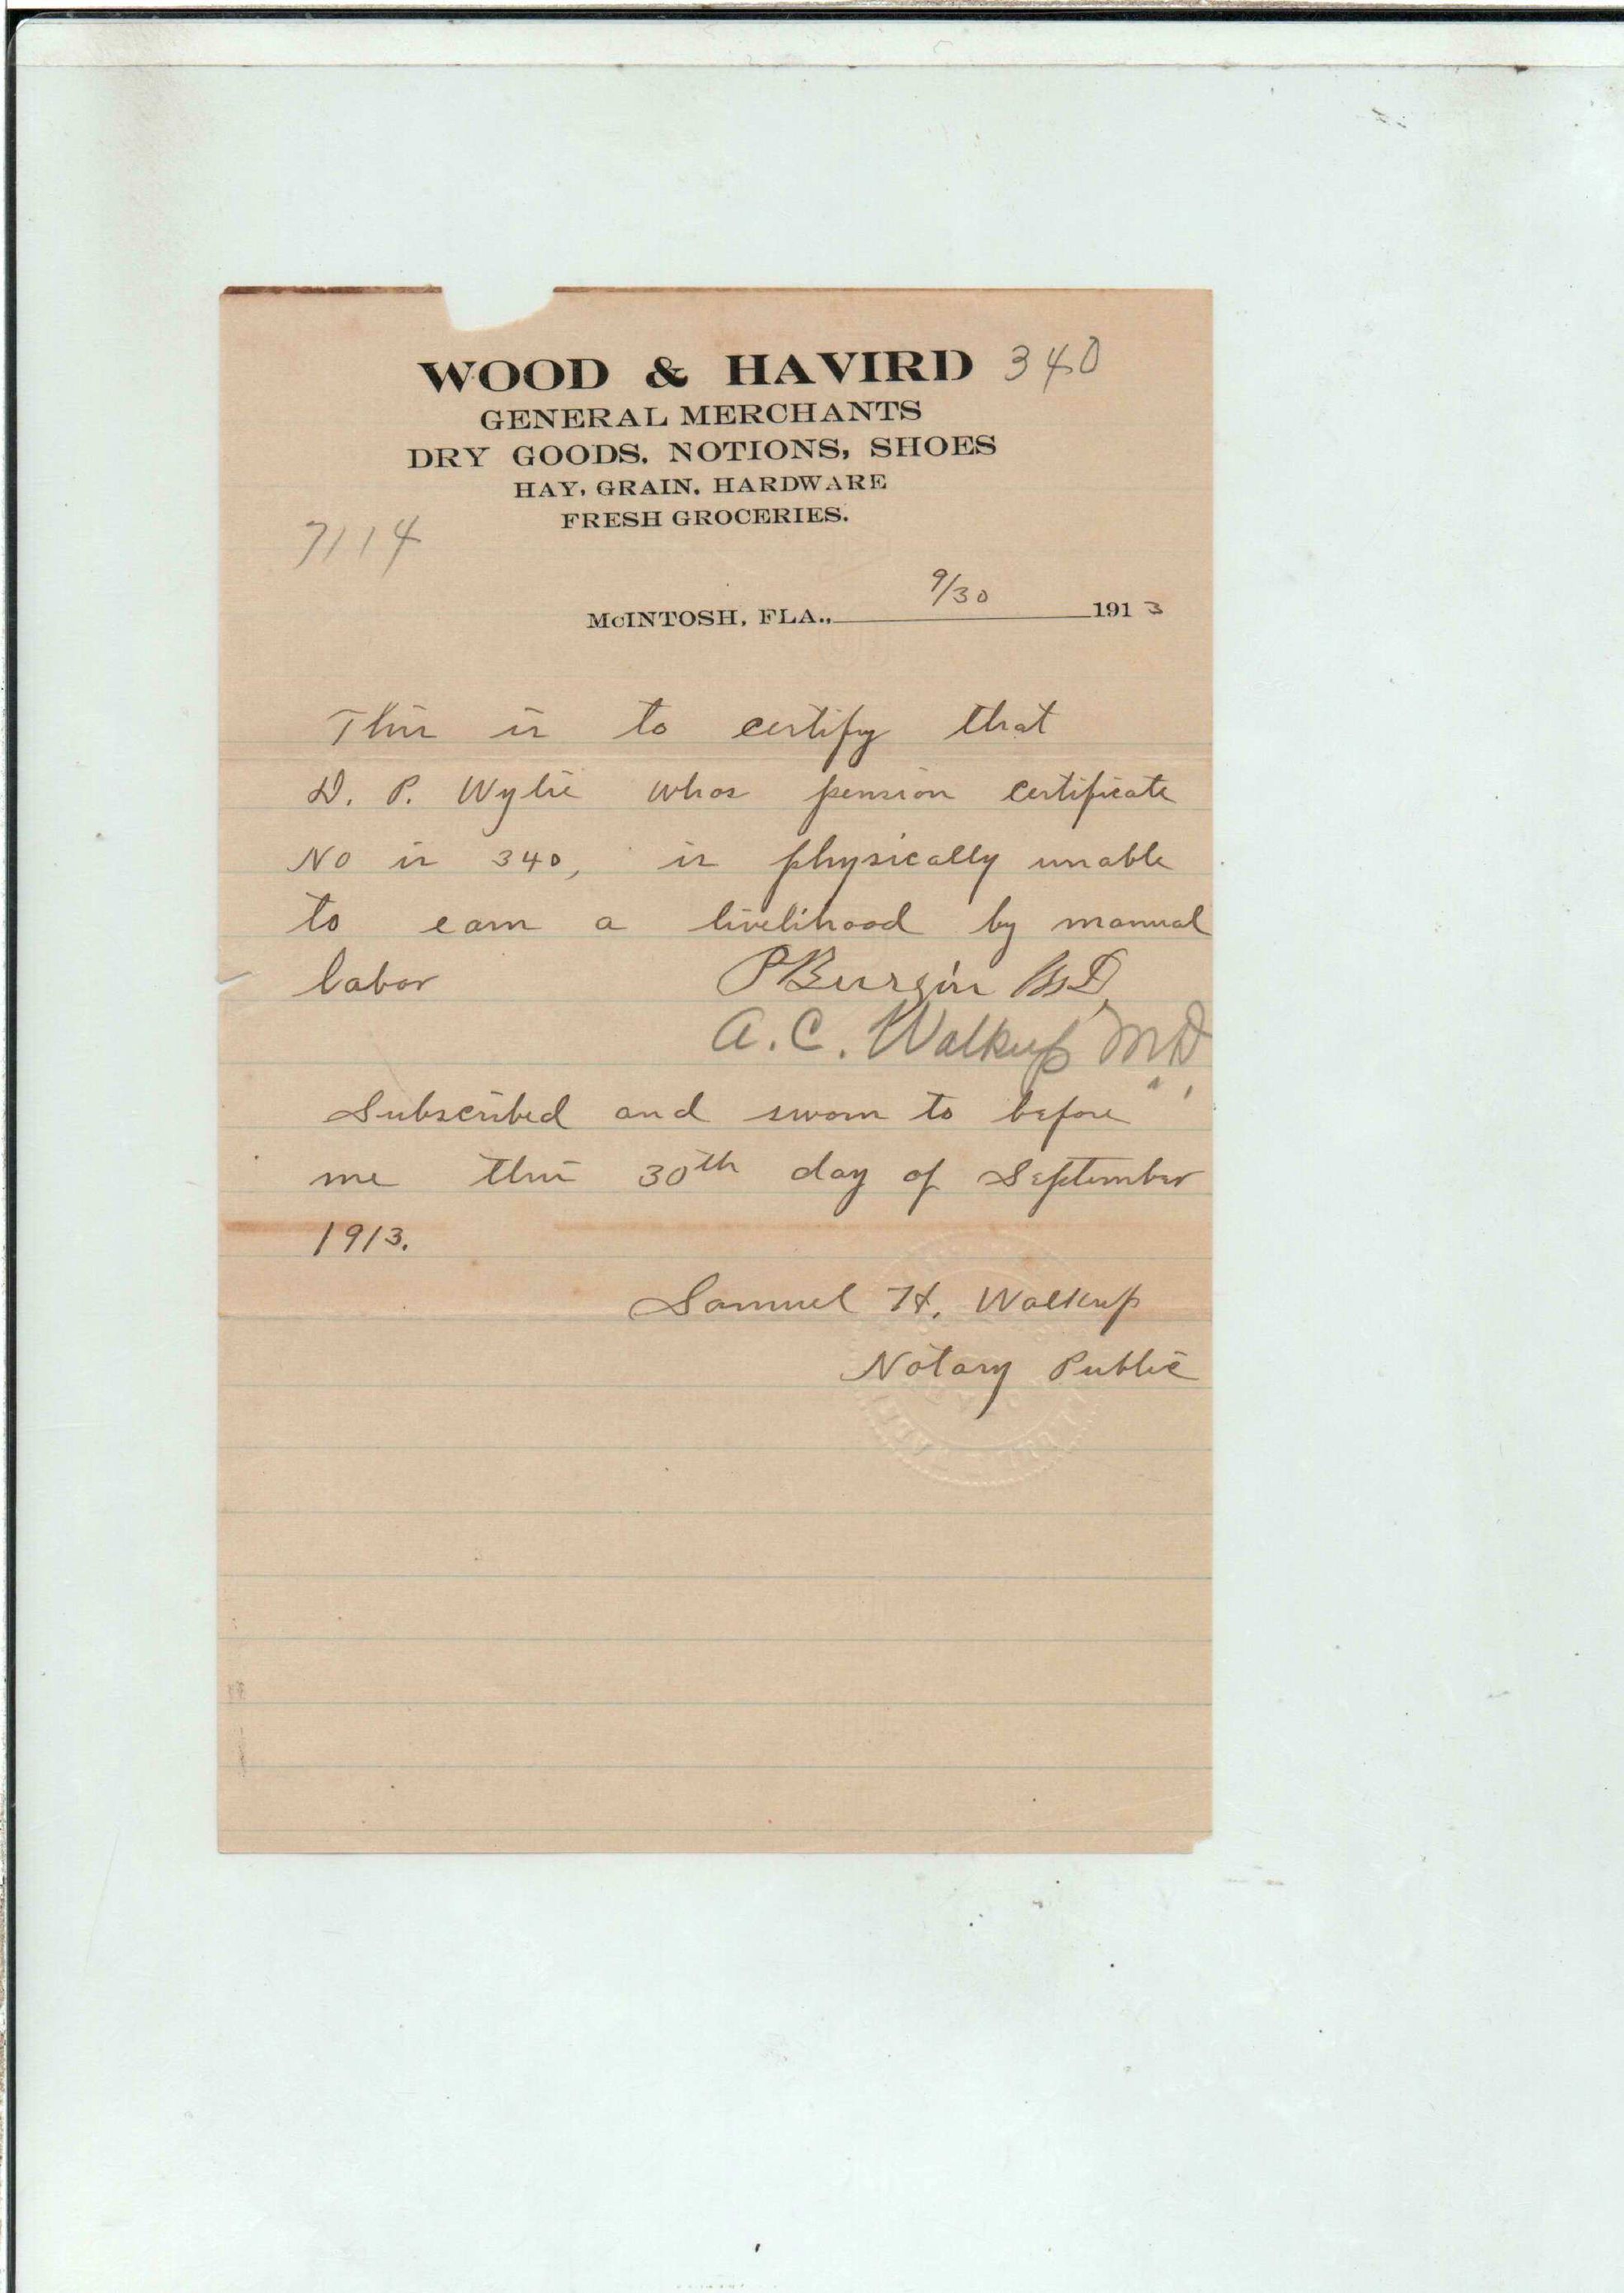 WOOD & HAVIRD 340
GENERAL MERCHANTS
DRY GOODS. NOTIONS, SHOES
HAY, GRAIN. HARDWARE
FRESH GROCERIES.
7114
McINTOSH, FLA., 9/30 1913
This is to certify that
D. P. Wylie whos pension certificate
No is 340, is physically unable
to earn a livelihood by manual
labor P Burgin M.D.
A. C. Walkup M.D.
Subscribed and sworn to before
me this 30th day of September
1913.
Samuel H. Walkup
Notary Public